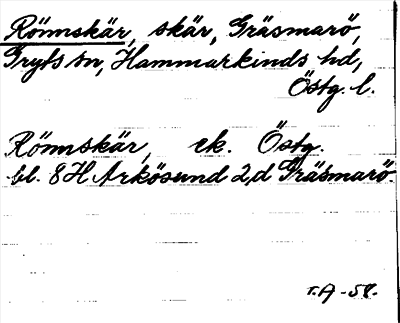 Römskär, skär, Gräsmarö,
Gryts sn, Hammarkinds hd,
Östg. l.
Römskär, ek. Östg.
bl. 8 H Arkösund 2,d Gräsmarö.
T.A -58.